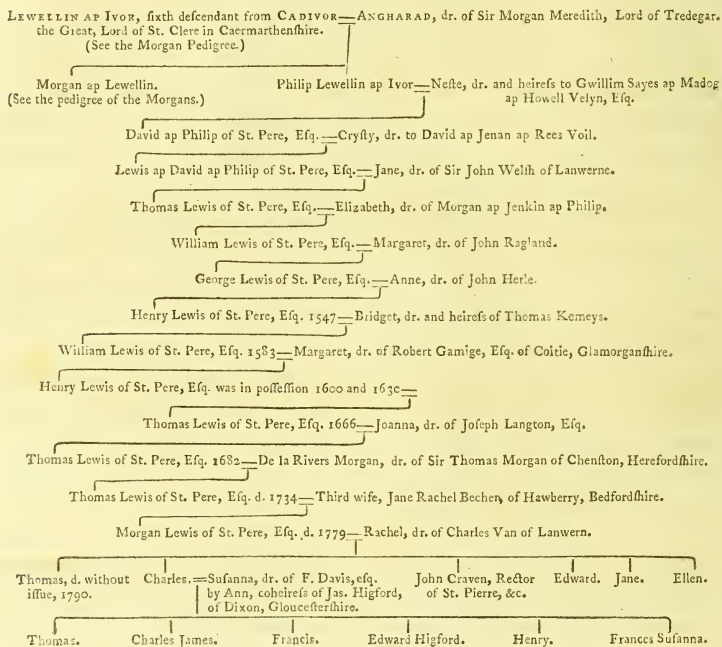 LEWELLIN AP IVOR, ſixth deſcendant from CADIVOR—ANGHARAD, dr. of Sir Morgan Meredith, Lord of Tredegar.
the Great, Lord of St. Clere in Caermarthenſhire.
(See the Morgan Pedigree.)
Morgan ap Lewellin. Philip Lewellin ap Ivor—Neſte, dr. and heireſs to Gwillim Sayes ap Madog
(See the pedigree of the Morgans.) ap Howell Velyn, Eſq.
David ap Philip of St. Pere, Eſq.—Cryſty, dr. to David ap Jenan ap Rees Voil.
Lewis ap David ap Philip of St. Pere, Eſq.—Jane, dr. of Sir John Welſh of Lanwerne.
Thomas Lewis of St. Pere, Eſq.—Elizabeth, dr. of Morgan ap Jenkin ap Philip.
William Lewis of St. Pere, Eſq.—Margaret, dr. of John Ragland.
George Lewis of St. Pere, Eſq.—Anne, dr. of John Herle.
Henry Lewis of St. Pere, Eſq. 1547—Bridget, dr. and heireſs of Thomas Kemeys.
William Lewis of St. Pere, Eſq. 1583—Margaret, dr. of Robert Gamige, Eſq. of Coitie, Glamorganſhire.
Henry Lewis of St. Pere, Eſq. was in poſſeſſion 1600 and 1630—
Thomas Lewis of St. Pere, Eſq. 1666—Joanna, dr. of Joſeph Langton, Eſq.
Thomas Lewis of St. Pere, Eſq. 1682—De la Rivers Morgan, dr. of Sir Thomas Morgan of Chenſton, Herefordſhire.
Thomas Lewis of St. Pere, Eſq. d. 1734—Third wife, Jane Rachel Becher, of Hawberry, Bedfordſhire.
Morgan Lewis of St. Pere, Eſq. d. 1779—Rachel, dr. of Charles Van of Lanwern.
Thomas, d. without Charles.=Suſanna, dr. of F. Davis, eſq. John Craven, Rector Edward. Jane. Ellen.
iſſue, 1790. by Ann, coheireſs of Jas. Higford, of St. Pierre, &c.
of Dixon, Glouceſterſhire.
Thomas. Charles James. Francis. Edward Higford. Henry. Frances Suſanna.